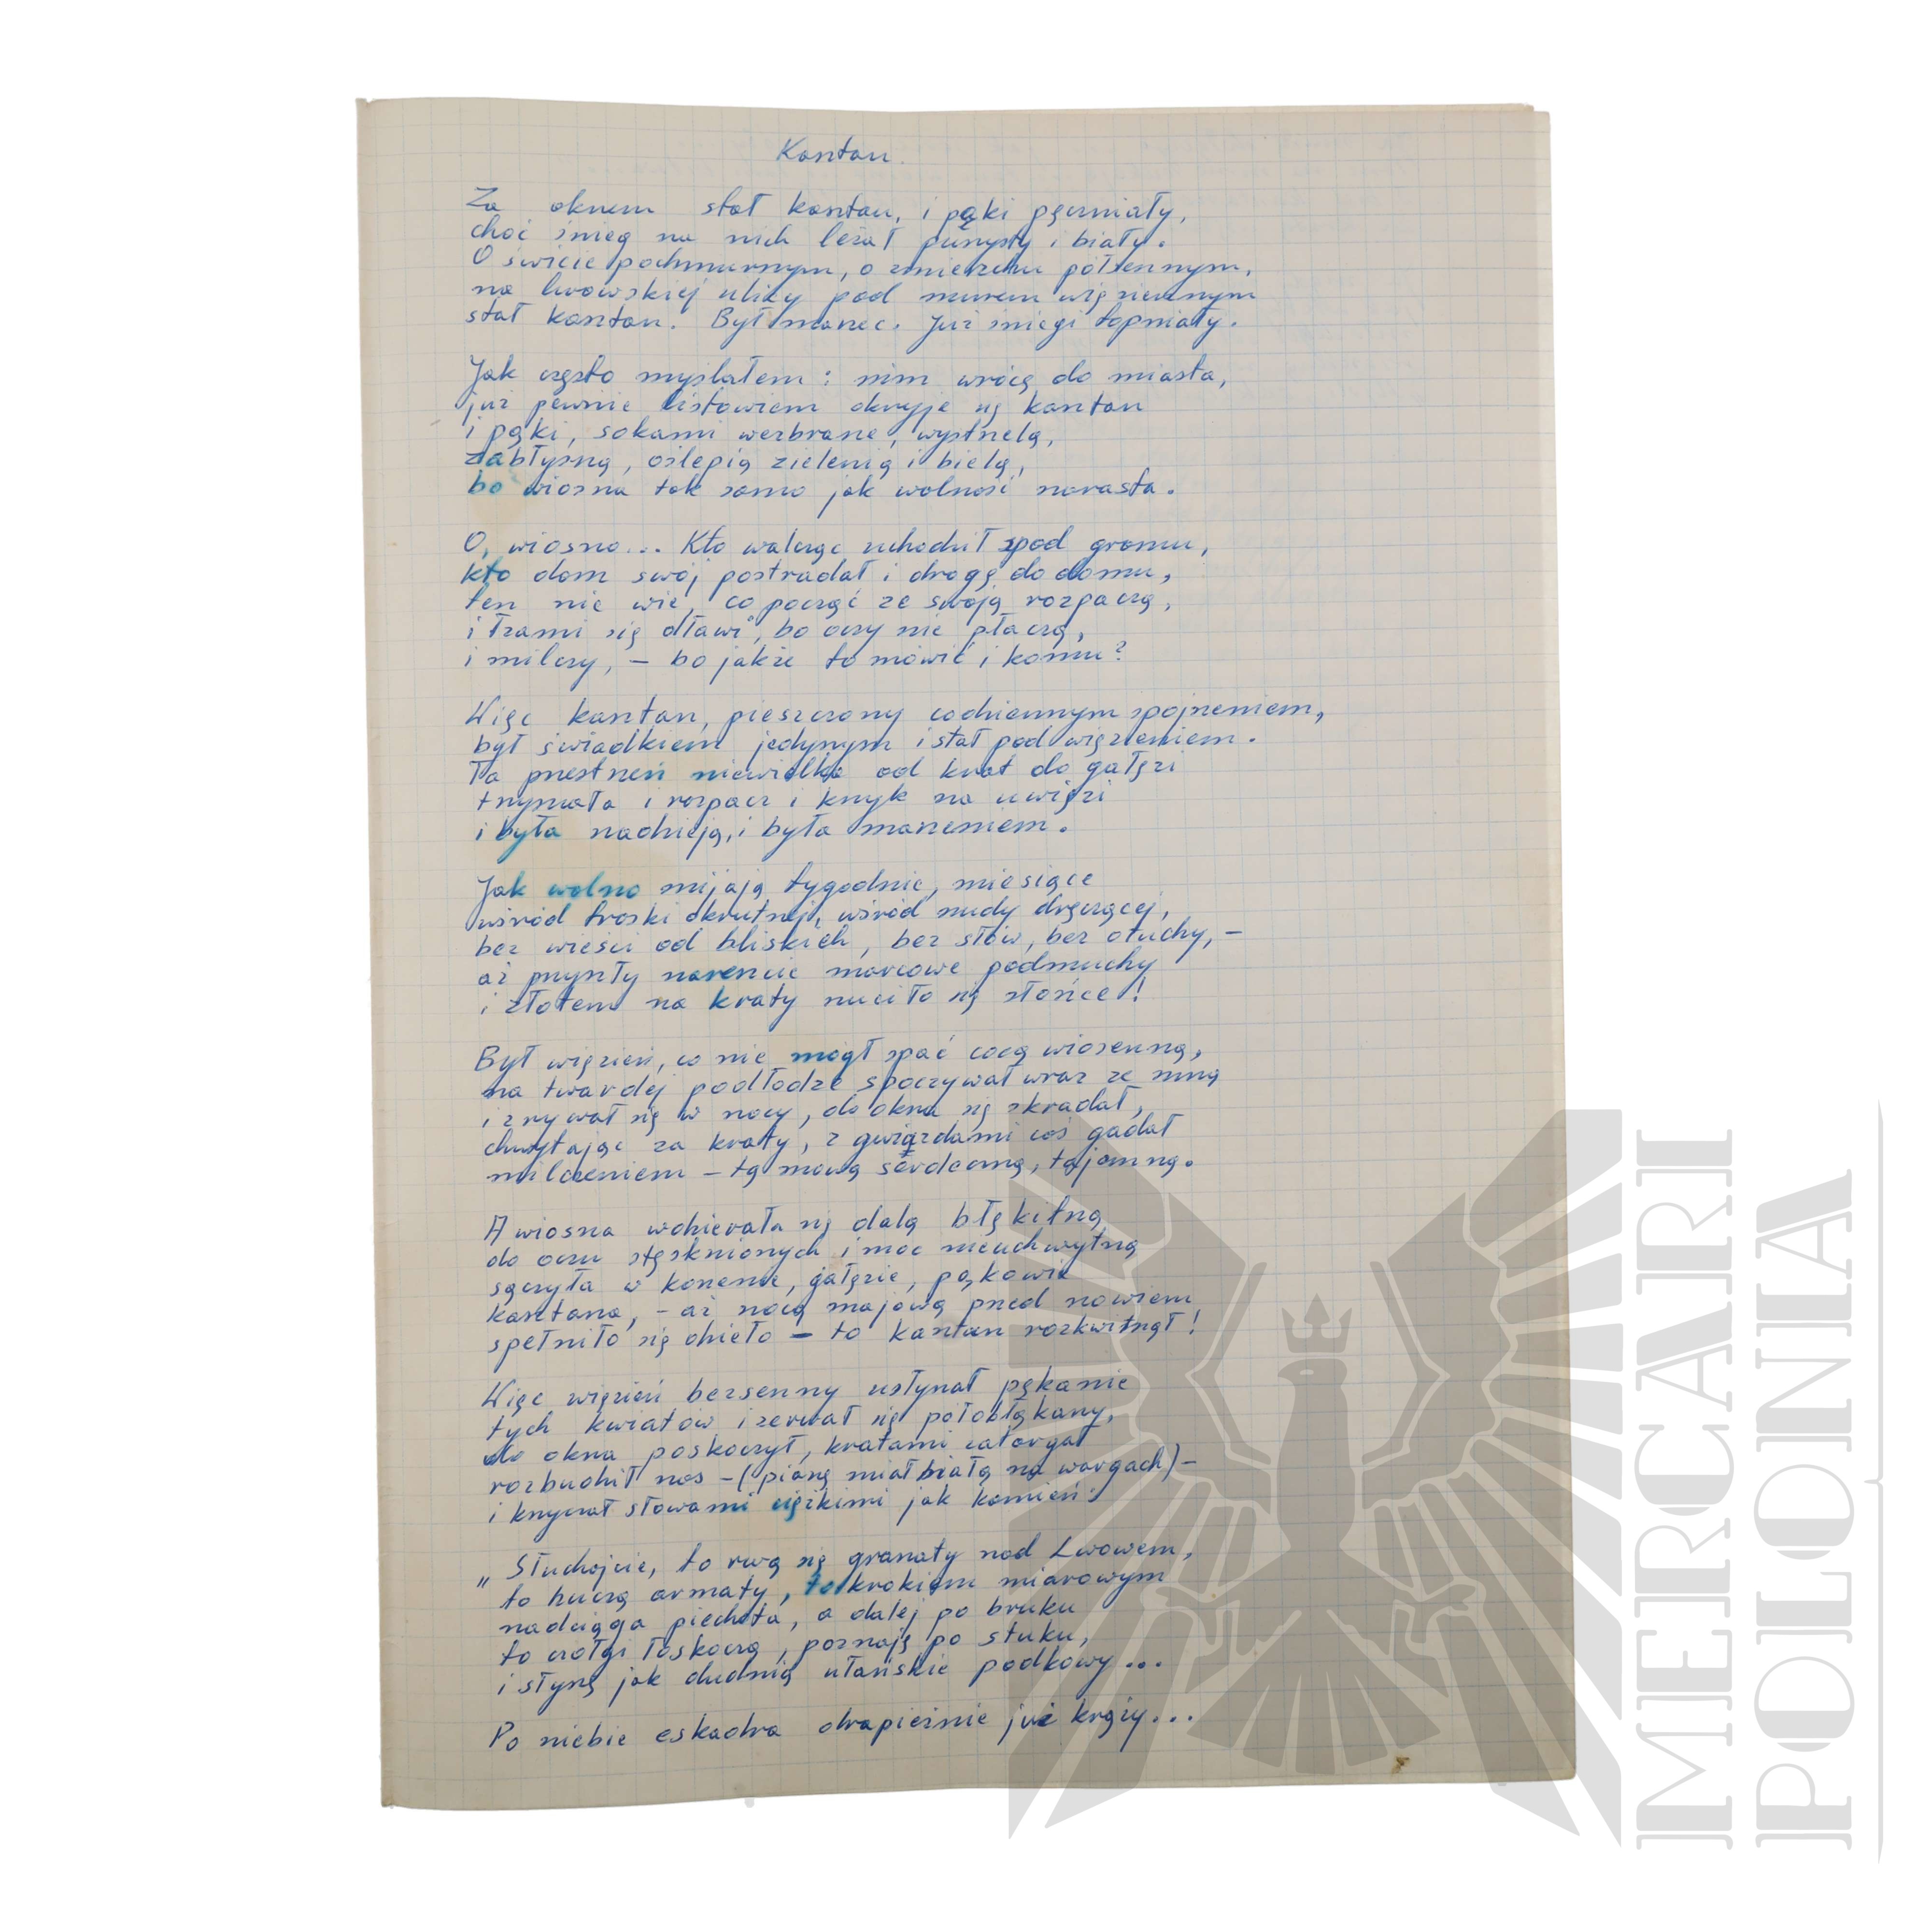 Kasztan.
Za oknem stał kasztan, i pąki pęczniały,
choć śnieg na nich leżał puszysty i biały.
O świcie pochmurnym, o zmierzchu półsennym,
na lwowskiej ulicy pod murem więziennym
stał kasztan. Był marzec. Już śniegi topniały.
Jak często myślałem: nim wrócę do miasta,
już pewnie listowiem okryje się kasztan
i pąki, sokami wezbrane, wystrzelą,
zabłysną, oślepią zielenią i bielą,
bo wiosna tak samo jak wolność narasta.
O, wiosno... Kto walcząc uchodził spod gromu,
kto dom swój postradał i drogę do domu,
ten nie wie, co począć ze swoją rozpaczą,
i łzami się dławi, bo oczy nie płaczą,
i milczy, – bo jakże to mówić i komu?
Więc kasztan, pieszczony codziennym spojrzeniem,
był świadkiem jedynym i stał pod więzieniem.
Ta przestrzeń niewielka od krat do gałęzi
trzymała i rozpacz i krzyk na uwięzi
i była nadzieją, i była marzeniem.
Jak wolno mijają tygodnie, miesiące
wśród troski okrutnej, wśród nudy dręczącej,
bez wieści od bliskich, bez słów, bez otuchy, –
aż przyszły nareszcie marcowe podmuchy
i złotem na kraty rzuciło się słońce!
Był więzień, co nie mógł spać nocą wiosenną,
na twardej podłodze spoczywał wraz ze mną
i zrywał się w nocy, do okna się skradał,
chwytając za kraty, z gwiazdami coś gadał
milczeniem – tą mową serdeczną, tajemną.
A wiosna wdzierała się dalą błękitną
do oczu stęsknionych i moc nieuchwytną
sączyła w korzenie, gałęzie, pąkowie
kasztana, – aż nocą majową przed nowiem
spełniło się dzieło – to kasztan rozkwitnął!
Więc więzień bezsenny usłyszał pękanie
tych kwiatów i zerwał się półobłąkany,
do okna poskoczył, kratami zatargał
rozbudził nas – (pianę miał białą na wargach) –
i krzyczał słowami ciężkimi jak kamień:
„Słuchajcie, to rwą się granaty nad Lwowem,
to huczą armaty, to krokiem miarowym
nadciąga piechota, a dalej po bruku
to czołgi łoskoczą, poznaję po stuku,
i słyszę jak dudnią ułańskie podkowy...
Po niebie eskadra drapieżnie już krąży...
IMERCARI
POLONIA